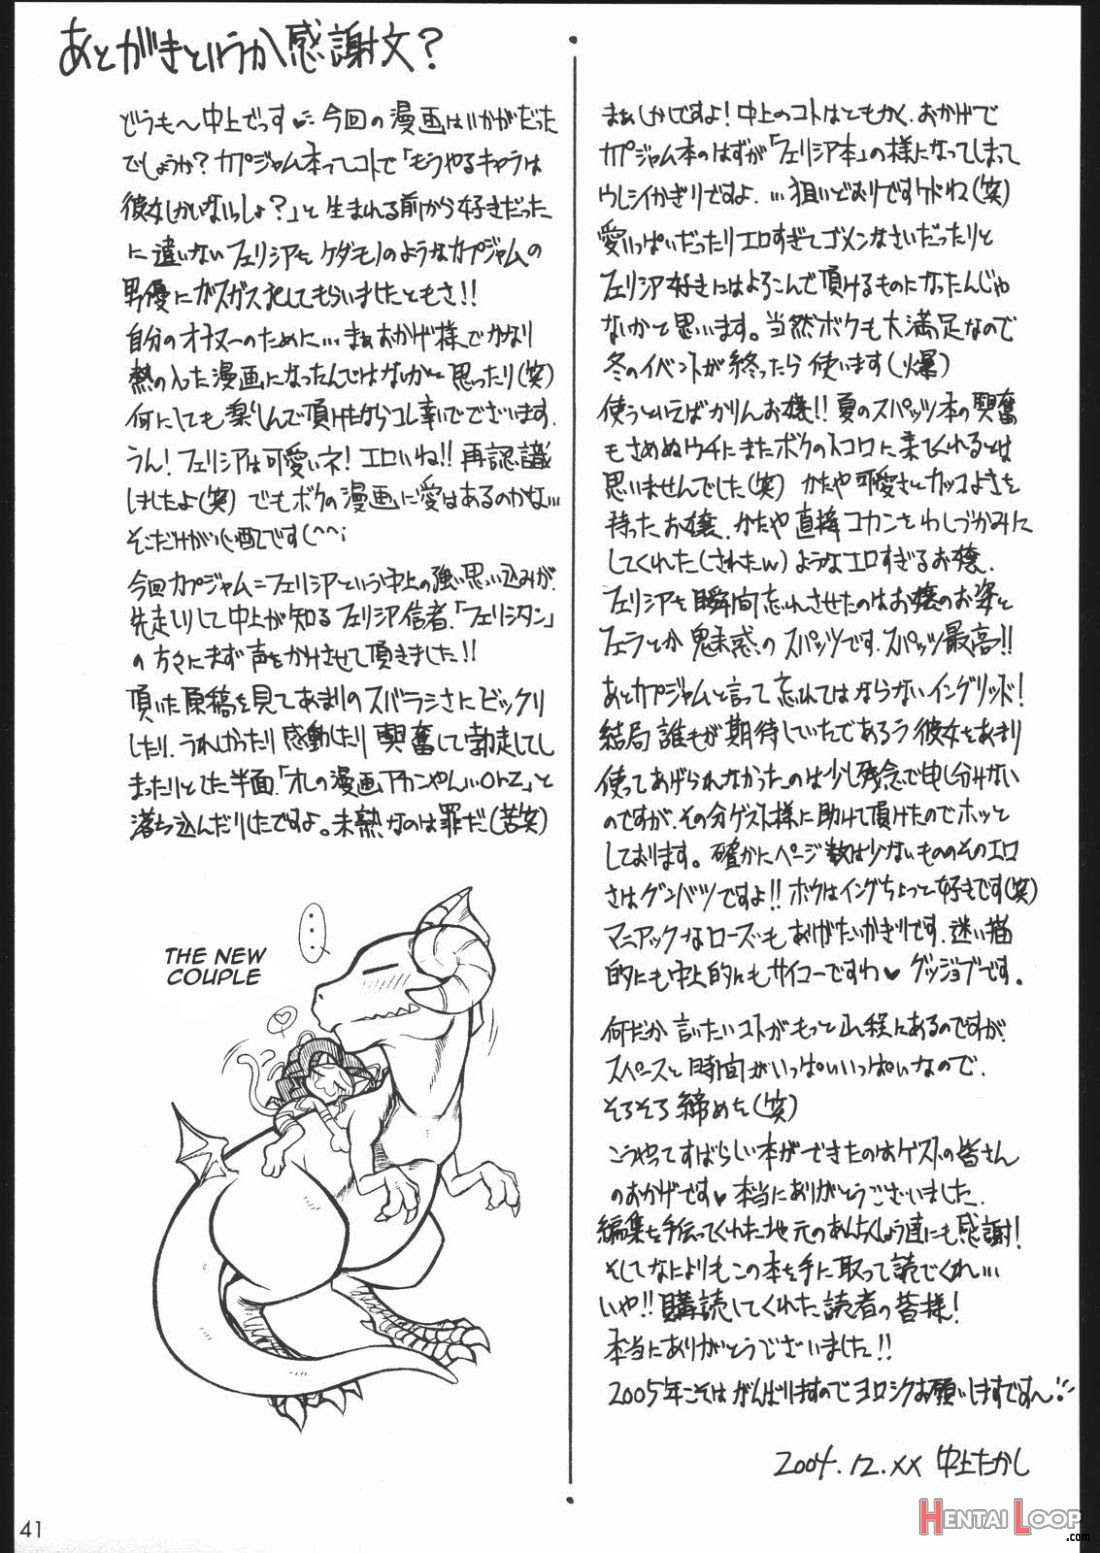 あとがきというか感謝文?
どうも〜中上でっす 今回の漫画はいかがだった
でしょうか?カプジャム本ってコトで「もうやるキャラは
彼女しかいないっしょ?」と生まれる前から好きだった
に違いないフェリシアを ケダモノのようなカプジャムの
男優にガスガス犯してもらいましたともさ!!
自分のオナヌーのために…まぁおかげ様でかなり
熱の入った漫画になったんではないかと思ったり(笑)
何にしても楽しんで頂けたならコレ幸いでございます.
うん!フェリシアは可愛いネ!エロいね!!再認識
しましたよ(笑) でもボクの漫画に愛はあるのかな…
そこだけが心配です(^^;
今回カプジャム=フェリシアという中上の強い思い込みが.
先走りして中上が知るフェリシア信者.「フェリシタン」
の方々にまず声をかけさせて頂きました!!
頂いた原稿を見てあまりのスバラシさにビックリ
したり.うれしかったり感動したり興奮して勃走してし
まったりとした半面.「オレの漫画アカンやん…orz」と
落ち込んだりしたですよ。未熟なのは罪だ(苦笑)
THE NEW
COUPLE
まぁしかしですよ!中上のコトはともかく.おかげで
カプジャム本のはずが「フェリシア本」の様になってしまって
ウレシイかぎりですよ.…狙いどおりですケドね(笑)
愛いっぱいだったりエロすぎてゴメンなさいだったりと
フェリシア好きにはよろこんで頂けるものになったんじゃ
ないかと思います。当然ボクも大満足なので
冬のイベントが終ったら使います(爆)
使うといえばかりんお嬢!!夏のスパッツ本の興奮
もさめぬウチにまたボクのトコロに来てくれるとは
思いませんでした(笑) かたや可愛さとカッコよさを
持ったお嬢.かたや直接コカンをわしづかみに
してくれた(されたw)ようなエロすぎるお嬢.
フェリシアを瞬間忘れさせたのはお嬢のお姿と
フェラとか魅惑のスパッツです.スパッツ最高!!
あとカプジャムと言って忘れてはならないイングリッド!
結局誰もが期待していたであろう彼女をあまり
使ってあげられなかったのは少し残念で申し分けない
のですが.その分ゲスト様に助けて頂けたのでホッと
しております。確かにページ数は少ないもののそのエロ
さはゲンバツですよ!!ボクはイングちょっと好きです(笑)
マニアックなローズもありがたいかぎりです.迷い猫
的にも中上的にもサイコーですわ♥ グッジョブです.
何だか言いたいコトがもっと山程にあるのですが
スペースと時間がいっぱいいっぱいなので.
そろそろ締めを(笑)
こうやってすばらしい本ができたのはゲストの皆さん
のおかげです♥本当にありがとうございました.
編集を手伝ってくれた地元のあんちくしょう達にも感謝!
そしてなによりもこの本を手に取って読でくれ…
いや!!購読してくれた読者の皆様!
本当にありがとうございました!!
2005年こそはがんばりますのでヨロシクお願いしますです〜!!
2004.12.XX 中上たかし
41
HENTAI LOOP
.com